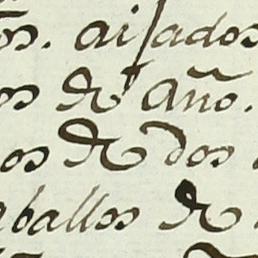 os. aijados
os de año.
os de dos
ballos de